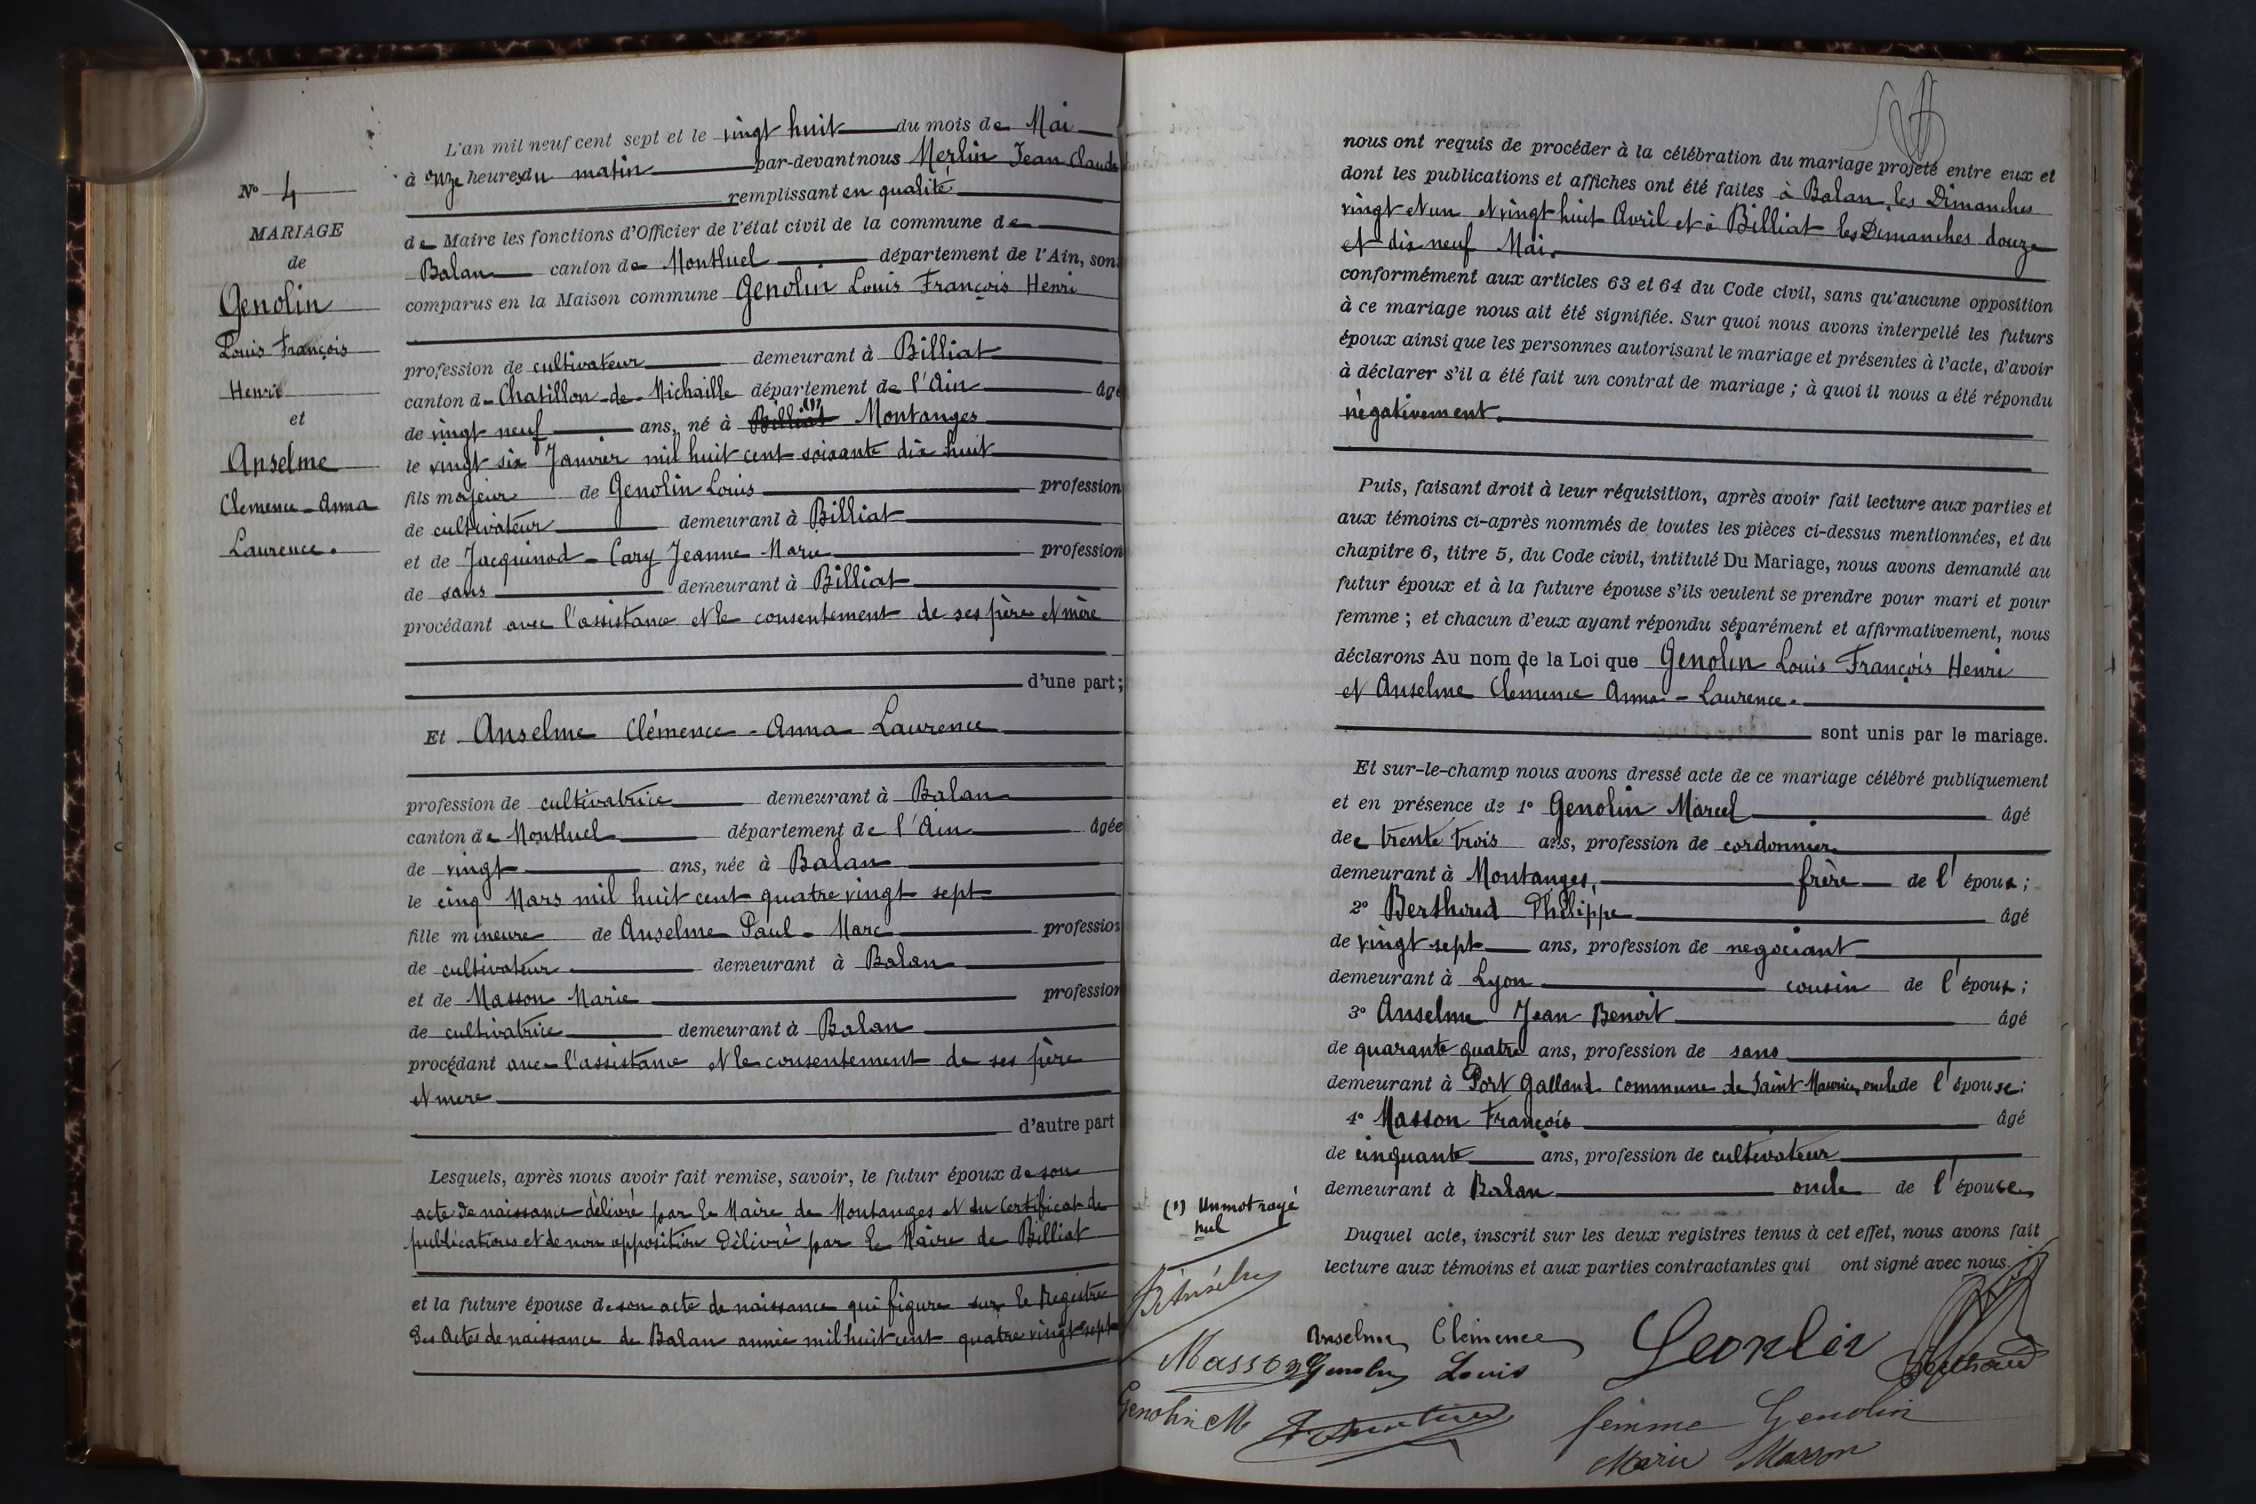 L'an mil neuf cent sept et le vingt huit du mois de Mai
à onze heures du matin par-devant nous Merlin Jean Claude
remplissant en qualité
de Maire les fonctions d'Officier de l'état civil de la commune de
Balan canton de Montluel département de l'Ain, sont
comparus en la Maison commune Genolin Louis François Henri
profession de cultivateur demeurant à Billiat
canton de Chatillon-de-Michaille département de l'Ain âgé
de vingt neuf ans, né à Billiat (1) Montanges
le vingt six Janvier mil huit cent soixante dix huit
fils majeur de Genolin Louis profession
de cultivateur demeurant à Billiat
et de Jacquinod-Cary Jeanne Marie profession
de sans demeurant à Billiat
procédant avec l'assistance et le consentement de ses père et mère
d'une part;
Et Anselme Clémence-Anna Laurence
profession de cultivatrice demeurant à Balan
canton de Montluel département de l'Ain âgée
de vingt ans, née à Balan
le cinq Mars mil huit cent quatre vingt sept
fille mineure de Anselme Paul-Marc profession
de cultivateur demeurant à Balan
et de Masson Marie profession
de cultivatrice demeurant à Balan
procédant avec l'assistance et le consentement de ses père
et mere
d'autre part
Lesquels, après nous avoir fait remise, savoir, le futur époux de son
acte de naissance délivré par le Maire de Montanges et du Certificat de
publications et de non opposition délivré par le Maire de Billiat
et la future épouse de son acte de naissance qui figure sur le Registre
des Actes de naissance de Balan année mil huit cent quatre vingt sept
No 4
MARIAGE
de
Genolin
Louis François
Henri
et
Anselme
Clemence-Anna
Laurence.
nous ont requis de procéder à la célébration du mariage projeté entre eux et
dont les publications et affiches ont été faites à Balan, les Dimanches
vingt et un et vingt huit Avril et à Billiat les Dimanches douze
et dix neuf Mai.
conformément aux articles 63 et 64 du Code civil, sans qu'aucune opposition
à ce mariage nous ait été signifiée. Sur quoi nous avons interpellé les futurs
époux ainsi que les personnes autorisant le mariage et présentes à l'acte, d'avoir
à déclarer s'il a été fait un contrat de mariage; à quoi il nous a été répondu
négativement.
Puis, faisant droit à leur réquisition, après avoir fait lecture aux parties et
aux témoins ci-après nommés de toutes les pièces ci-dessus mentionnées, et du
chapitre 6, titre 5, du Code civil, intitulé Du Mariage, nous avons demandé au
futur époux et à la future épouse s'ils veulent se prendre pour mari et pour
femme; et chacun d'eux ayant répondu séparément et affirmativement, nous
déclarons Au nom de la Loi que Genolin Louis François Henri
et Anselme Clemence Anna-Laurence.
sont unis par le mariage.
Et sur-le-champ nous avons dressé acte de ce mariage célébré publiquement
et en présence de 1o Genolin Marcel âgé
de trente trois ans, profession de cordonnier
demeurant à Montanges, frère de l'époux;
2o Berthoud Philippe âgé
de vingt sept ans, profession de negociant
demeurant à Lyon cousin de l'époux;
3o Anselme Jean Benoit âgé
de quarante quatre ans, profession de sans
demeurant à Port Galland commune de Saint Maurice, oncle de l'épouse;
4o Masson François âgé
de cinquante ans, profession de cultivateur
demeurant à Balan oncle de l'épouse
Duquel acte, inscrit sur les deux registres tenus à cet effet, nous avons fait
lecture aux témoins et aux parties contractantes qui ont signé avec nous.
(1) Un mot rayé
nul
Anselme Clémence
Masson Genolin Louis
Berthoud
Genolin M
femme Genolin
Marie Masson